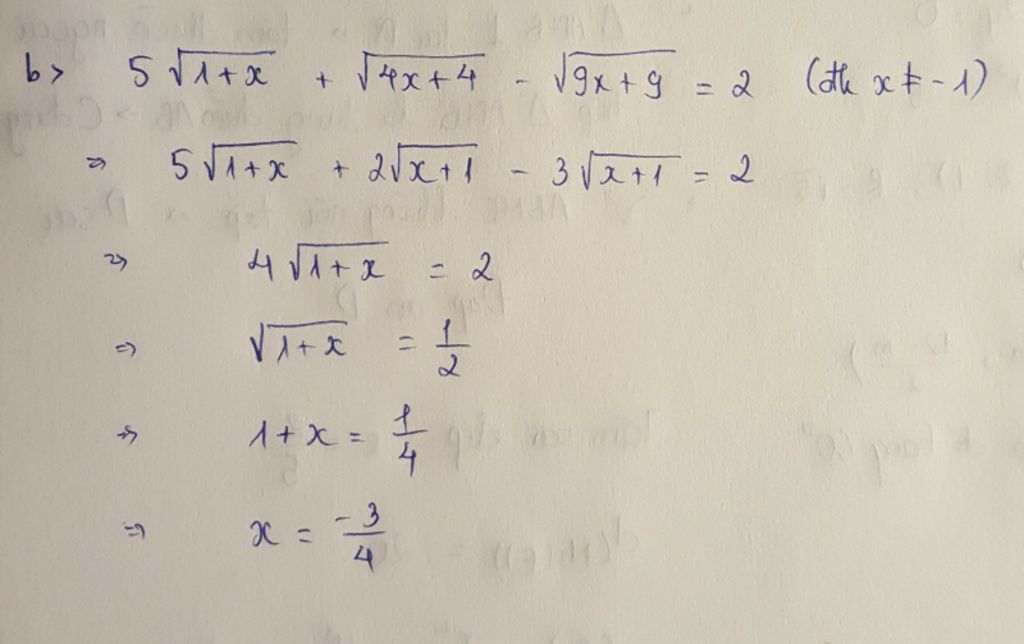 b> 5√(1+x) + √(4x+4) - √(9x+9) = 2 (đk x ≠ -1)
=> 5√(1+x) + 2√(x+1) - 3√(x+1) = 2
=> 4√(1+x) = 2
=> √(1+x) = 1/2
=> 1+x = 1/4
=> x = -3/4